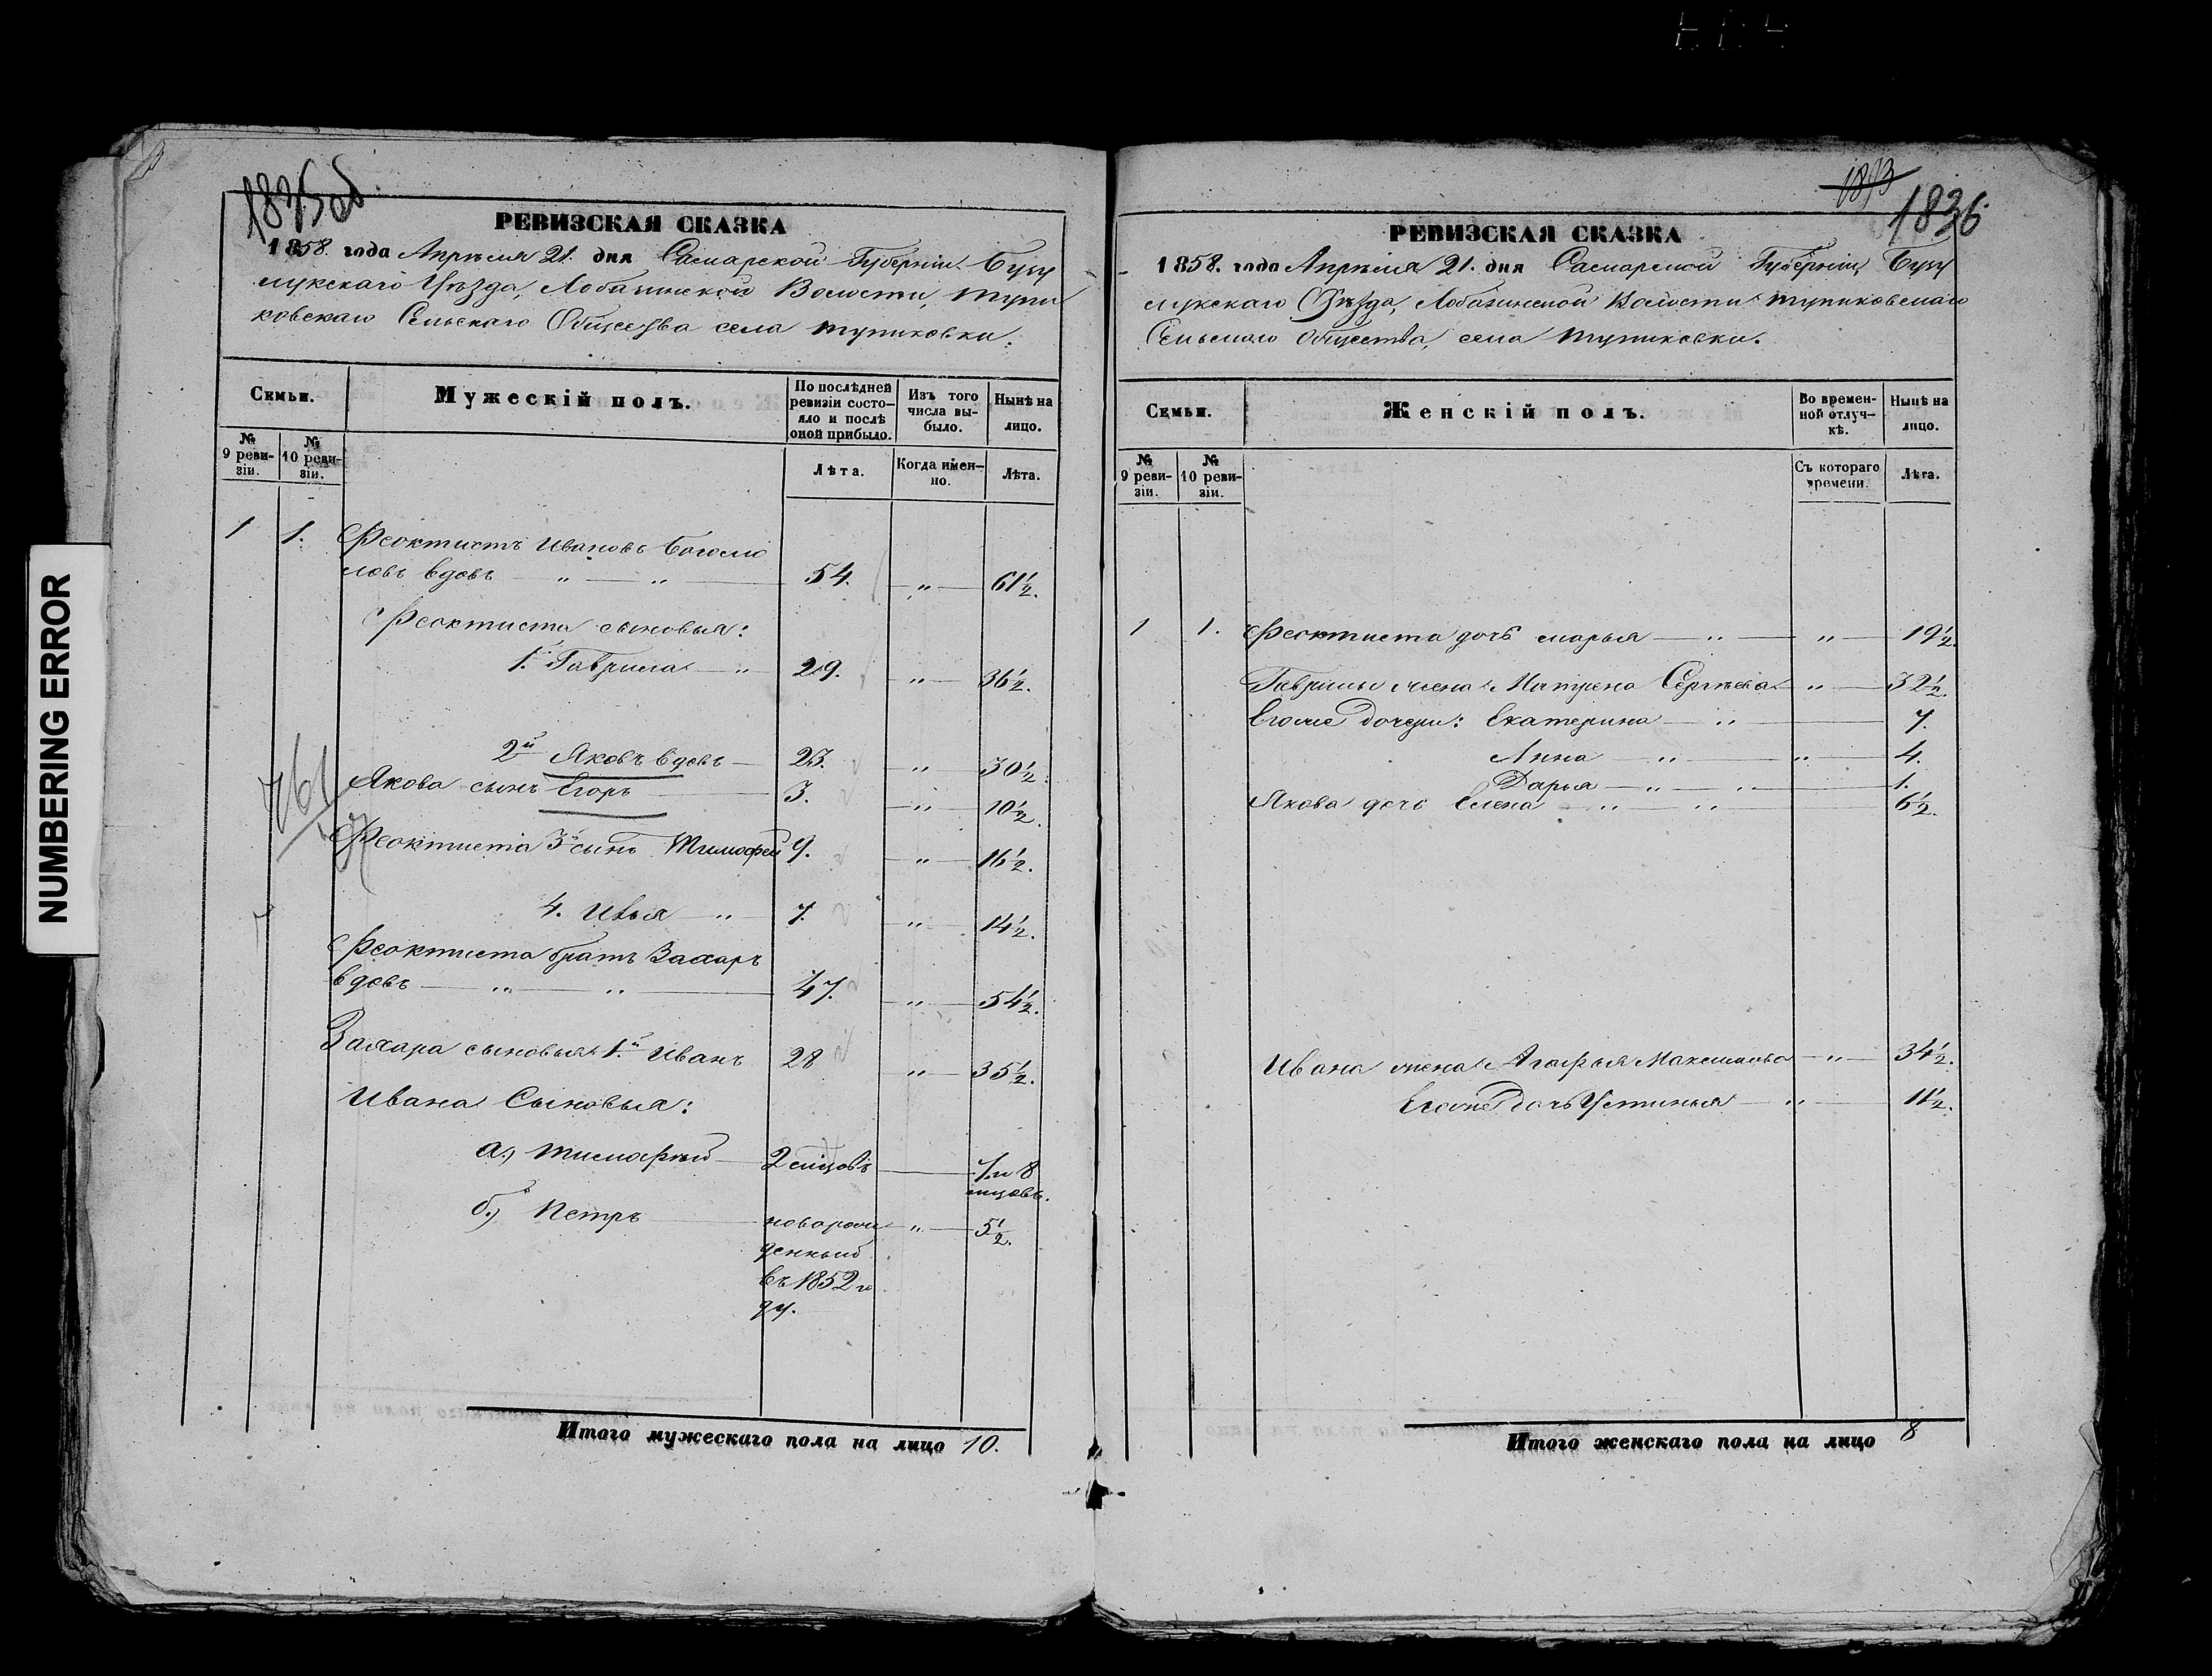 NUMBERING ERROR
1835 об
РЕВИЗСКАЯ СКАЗКА
1858. года Апрѣля 21. дня Самарской Губерніи Бузу
лукскаго Уѣзда, Лобазинской Волости, тупи
ковскаго Сельскаго Общества села тупиковки.
Семьи.
Мужескій полъ.
По послѣдней ревизіи состо—яло и послѣ оной прибыло.
Изъ того числа вы-было.
Нынѣ на лицо.
№ 9 реви-зіи.
№ 10 реви-зіи.
Лѣта.
Когда имен-но.
Лѣта.
1 1. Феоктистъ Ивановъ Богомо
ловъ вдовъ — „ — „ — 54. — „ — 61½.
Феоктиста сыновья:
1.й Гаврила — „ 29. „ — 36½.
2й Яковъ вдовъ — 23. „ — 30½.
Якова сынъ Егоръ — 3. — „ — 10½.
Феоктиста 3й сынъ Тимофей 9. — „ — 16½.
4. Илья — „ — 7. — „ — 14½.
Феоктиста братъ Захаръ
вдовъ — „ — „ — 47. — „ — 54½.
Захара сыновья 1.й Иванъ 28 — „ — 35½.
Ивана Сыновья:
а.) тимофей — 2 мѣсцовъ — 7 и 8
мцовъ.
б.) Петръ — новорож — „ — 5½.
денный
въ 1852 го
ду.
Итого мужескаго пола на лицо 10.
1836
РЕВИЗСКАЯ СКАЗКА
1858. года Апрѣля 21. дня Самарской Губерніи, Бузу
лукскаго Уѣзда, Лобазинской Волости тупиковскаго
Сельскаго Общества, села тупиковки.
Семьи.
Женскій полъ.
Во времен-ной отлуч-кѣ.
Нынѣ на лицо.
№ 9 реви-зіи.
№ 10 реви-зіи.
Съ котораго времени.
Лѣта.
1 1. Феоктиста дочь марья — „ — „ — 19½.
Гаврилы жена Матрена Сергѣева — „ — 32½.
Егоже Дочери: Екатерина — „ — 7.
Анна — „ — „ — 4.
Дарья — „ — „ — 1.
Якова дочь Елена — „ — „ — 6½.
Ивана жена Агафья Максимова — „ — 34½.
Егоже Дочь Устинья — „ — 11½.
Итого женскаго пола на лицо 8